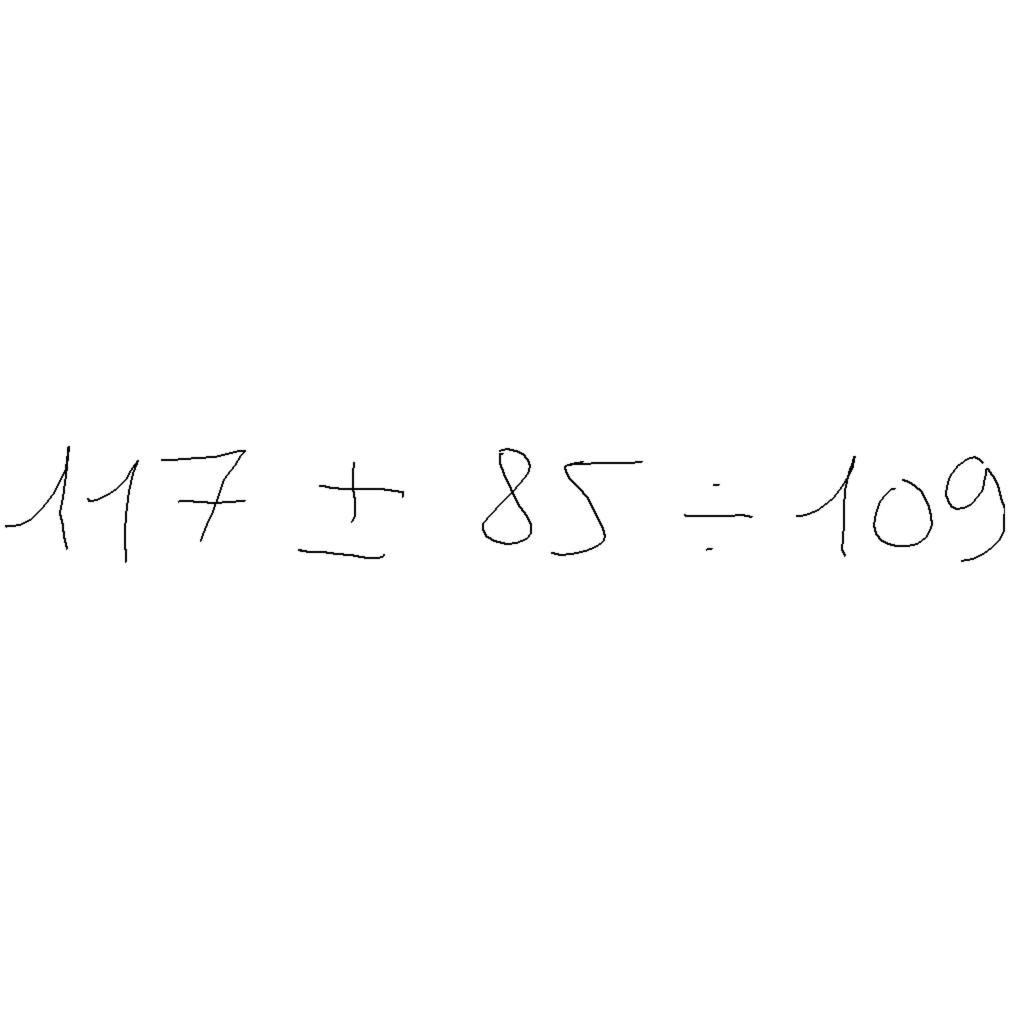 117 ± 85 ÷ 109